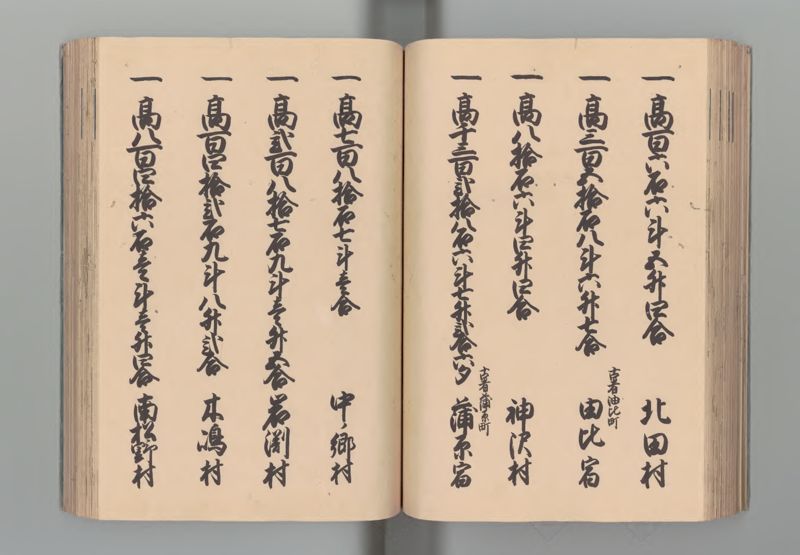 一 高百六石六斗五升四合 北田村
一 高三百五拾石八斗六升七合 古者由比町 由比宿
一 高八拾石六斗四升四合 神沢村
一 高千三百弐拾八石六斗七升弐合六夕 古者蒲原町 蒲原宿
一 高七百八拾石七斗壱合 中ノ郷村
一 高弐百八拾七石九斗壱升五合 岩渕村
一 高百四拾弐石九斗八升弐合 木嶋村
一 高八百四拾六石壱斗壱升四合 南松野村